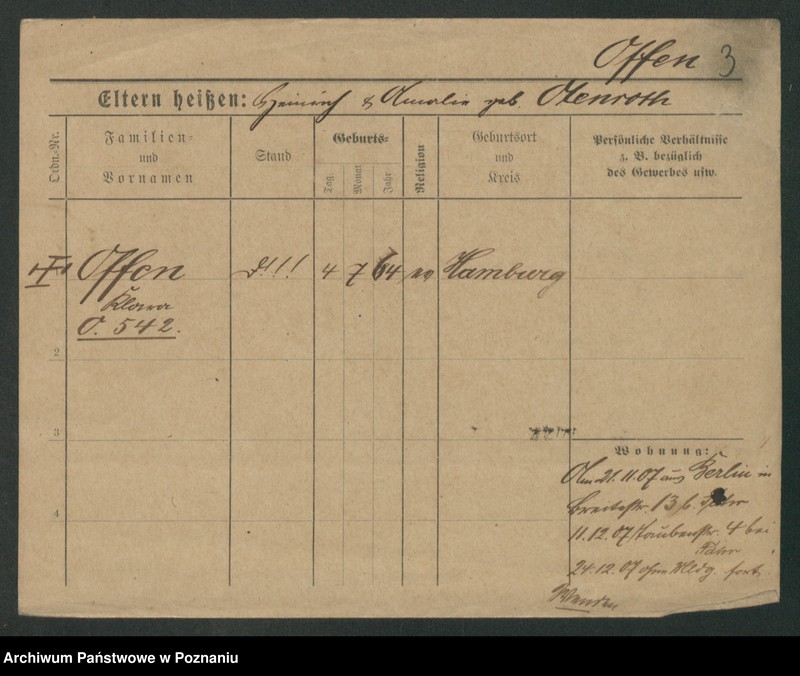 Offen 3
Eltern heißen: Heinrich & Amalie geb. Otenroth
Ordn.-Nr.
Familien-
und
Vornamen
Stand
Geburts-
Tag
Monat
Jahr
Religion
Geburtsort
und
Kreis
Persönliche Verhältnisse
z. B. bezüglich
des Gewerbes usw.
1 Offen 4 7 64 ev Hamburg
Klara
O. 542.
2
3
4
Wohnung:
Am 21.11.07 aus Berlin in
Breitestr. 13 b.
11.12.07 Taubenstr. 4 bei
24.12.07 ohne Mldg. fort.
Wenden
Archiwum Państwowe w Poznaniu